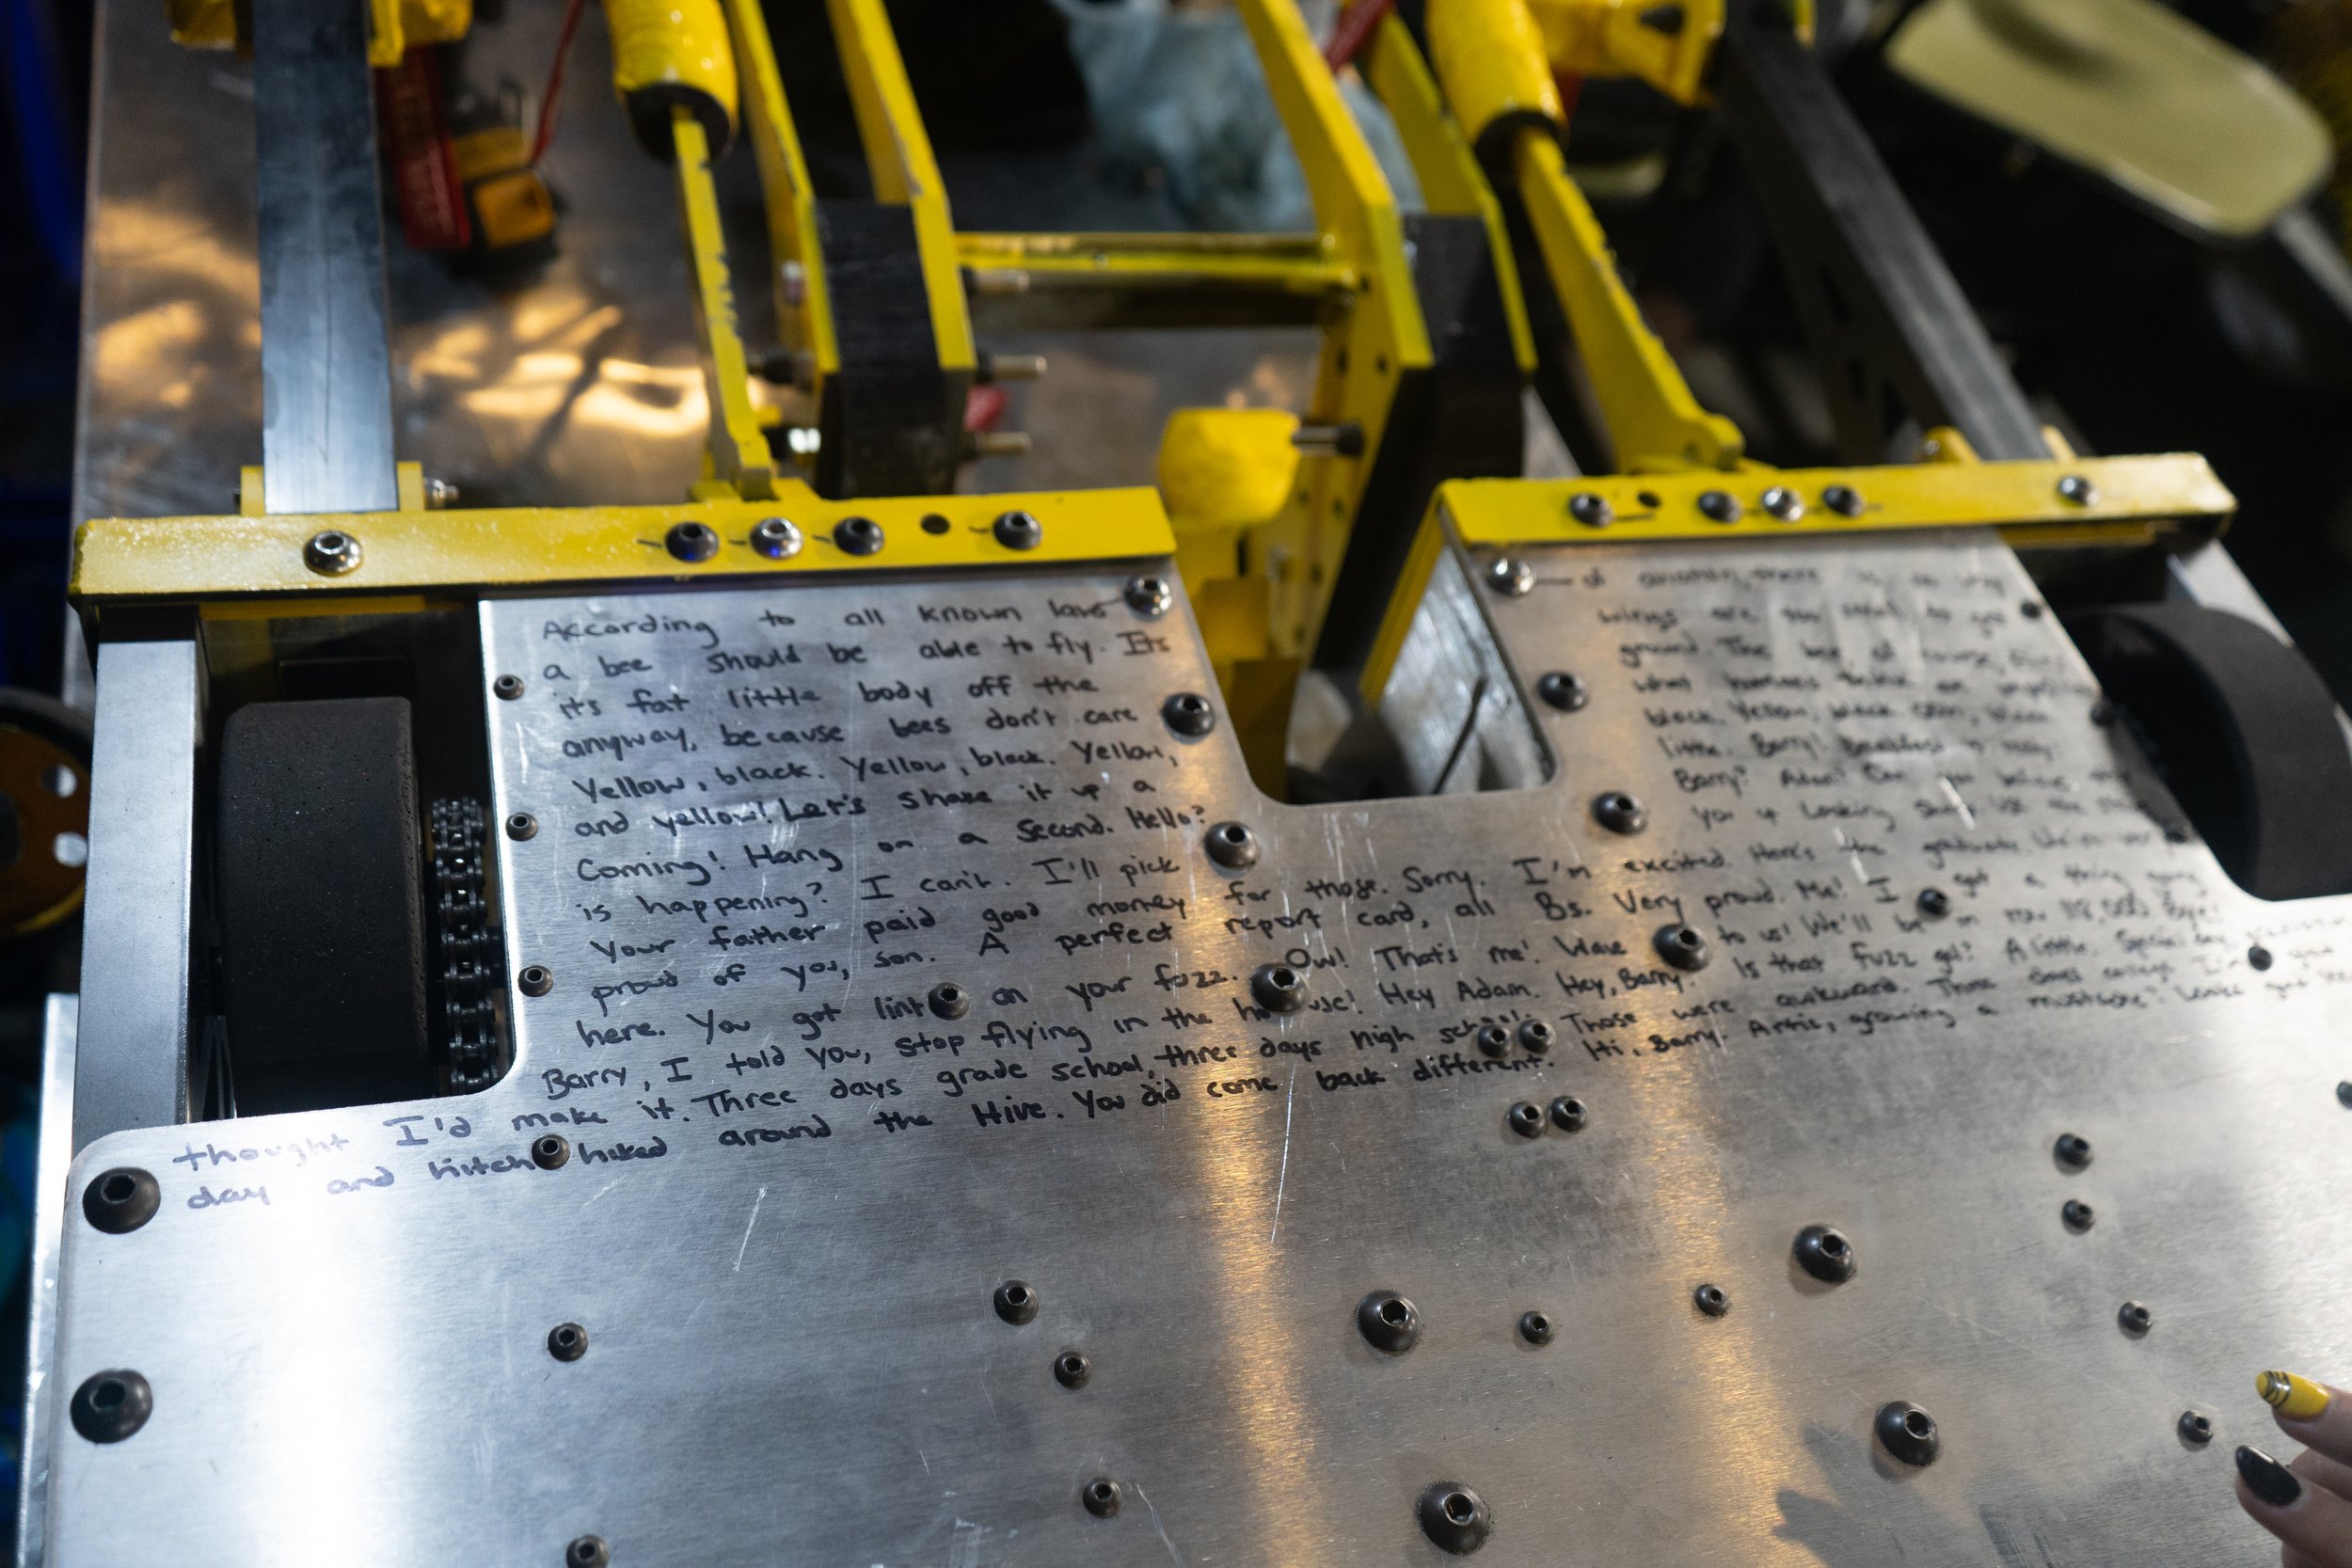 According to all known laws of aviation, there is no way
a bee should be able to fly. Its wings are too small to get
it's fat little body off the ground. The bee, of course, flies
anyway, because bees don't care what humans think
Yellow, black. Yellow, black. Yellow, black. Yellow, black. Ooh, black
and yellow! Let's shake it up a little. Barry! Breakfast is ready.
Coming! Hang on a Second. Hello? Barry? Adam? Can you believe this
is happening? I can't. I'll pick you up Looking Sharp. Use the stairs
Your father paid good money for those. Sorry. I'm excited. Here's the graduate. We're very
proud of you, son. A perfect report card, all Bs. Very proud. Ma! I got a thing going
here. You got lint on your fuzz. Ow! That's me! Wave to us! We'll be in row 118,000. Bye!
Barry, I told you, stop flying in the house! Hey Adam. Hey, Barry. Is that fuzz gel? A little. Special day,
thought I'd make it. Three days grade school, three days high school. Those were awkward. Three days college. I'm
day and hitch hiked around the Hive. You did come back different. Hi, Barry. Artie, growing a mustache? Looks good